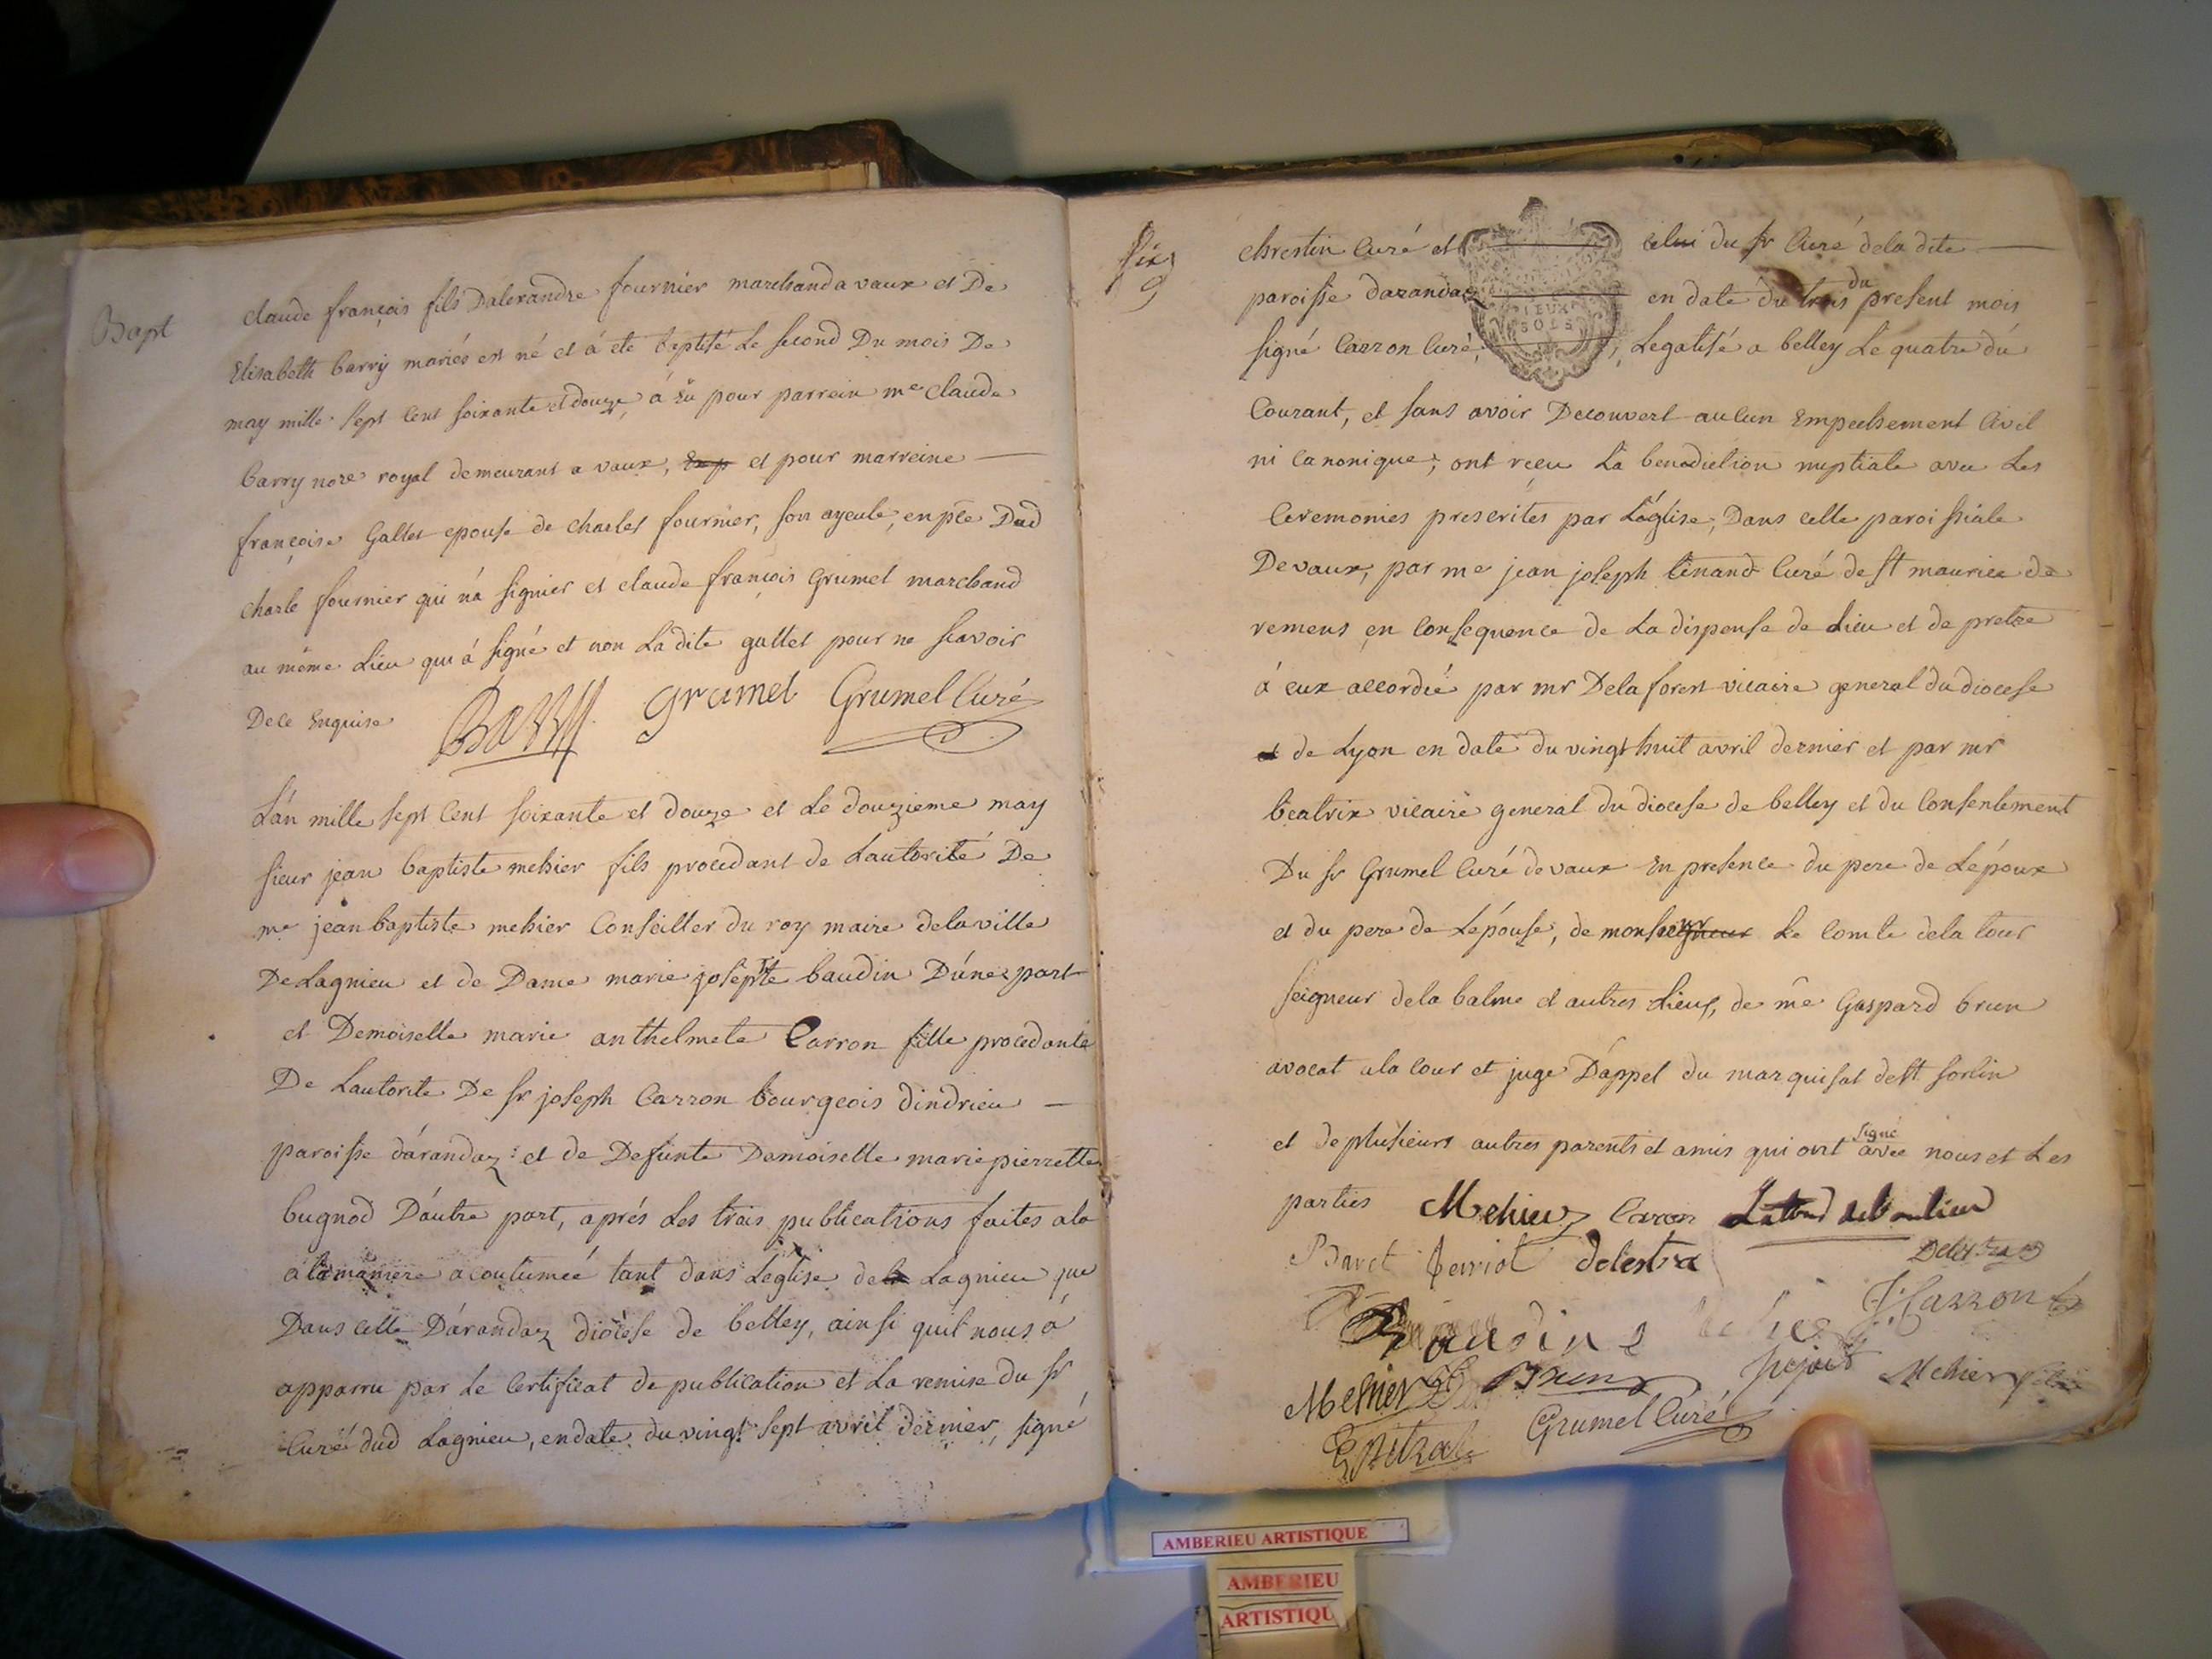 Bapt
claude françois fils Dalexandre fournier marchand a vaux et De
Elisabeth barry mariés est né et á eté baptisé Le second Du mois De
may mille sept cent soixante et douze, á eü pour parrein me claude
barry nore royal demeurant a vaux, et pour marreine
françoise Gallet epouse de charles fournier, son ayeule, en pce Dud
charle fournier qui ná signier et claude françois Grumel marchand
au même Lieu qui á signé et non La dite gallet pour ne scavoir
De ce Enquise Barry grumel Grumel Curé
L'án mille sept cent soixante et douze et Le douzieme may
sieur jean baptiste mehier fils procedant de Lautorité De
me jean baptiste mehier Conseiller du roy maire dela ville
De Lagnieu et de Dame marie josephte baudin D'úne part
et Demoiselle marie anthelmete Carron fille procedante
De Lautorite De sr joseph Carron bourgeois dindrieu
paroisse dárandaz et de Defunte Demoiselle marie pierrette
bugnod D'áutre part, aprés Les trois publications faites ala
a la maniere acoutumeé tant dans Leglise de Lagnieu que
Dans celle Dárandaz diocèse de belley, ainsi quil nous á
apparru par Le Certificat de publication et La remise du sr
Curé dud Lagnieu, en date du vingt sept avril dernier, signé
six
9
chrestin Curé et celui du sr Curé dela dite
paroisse darandaz en date du trois du present mois
DEUX
SOLS
signé Carron Curé, Legalisé a belley Le quatre du
Courant, et sans avoir Decouvert aucun Empechement Civil
ni Canonique; ont reçu La benediction nuptiale avec Les
Ceremonies prescrites par L'église, Dans celle paroissiale
De vaux, par me jean joseph Curé de st maurice de
remens en Consequence de La dispense de Lieu et de pretre
á eux accordée par mr Delaforest vicaire general du diocese
de Lyon en date du vingt huit avril dernier et par mr
beatrix vicaire general du diocese de belley et du Consentement
Du sr Grumel Curé de vaux En presence du pere de L'époux
et du pere de L'épouse, de monsieur Le Comte dela tour
seigneur dela balme et autres Lieux, de me Gaspard brun
avocat ala Cour et juge D'appel du marquisat de st sorlin
et de plusieurs autres parents et amis qui ont signé avec nous et Les
parties Mehier Carron
Bavet delestra
Delestra
J Carron
Baudin
Mehier Brun Mehier
Grumel Curé
AMBERIEU ARTISTIQUE
AMBERIEU
ARTISTIQU